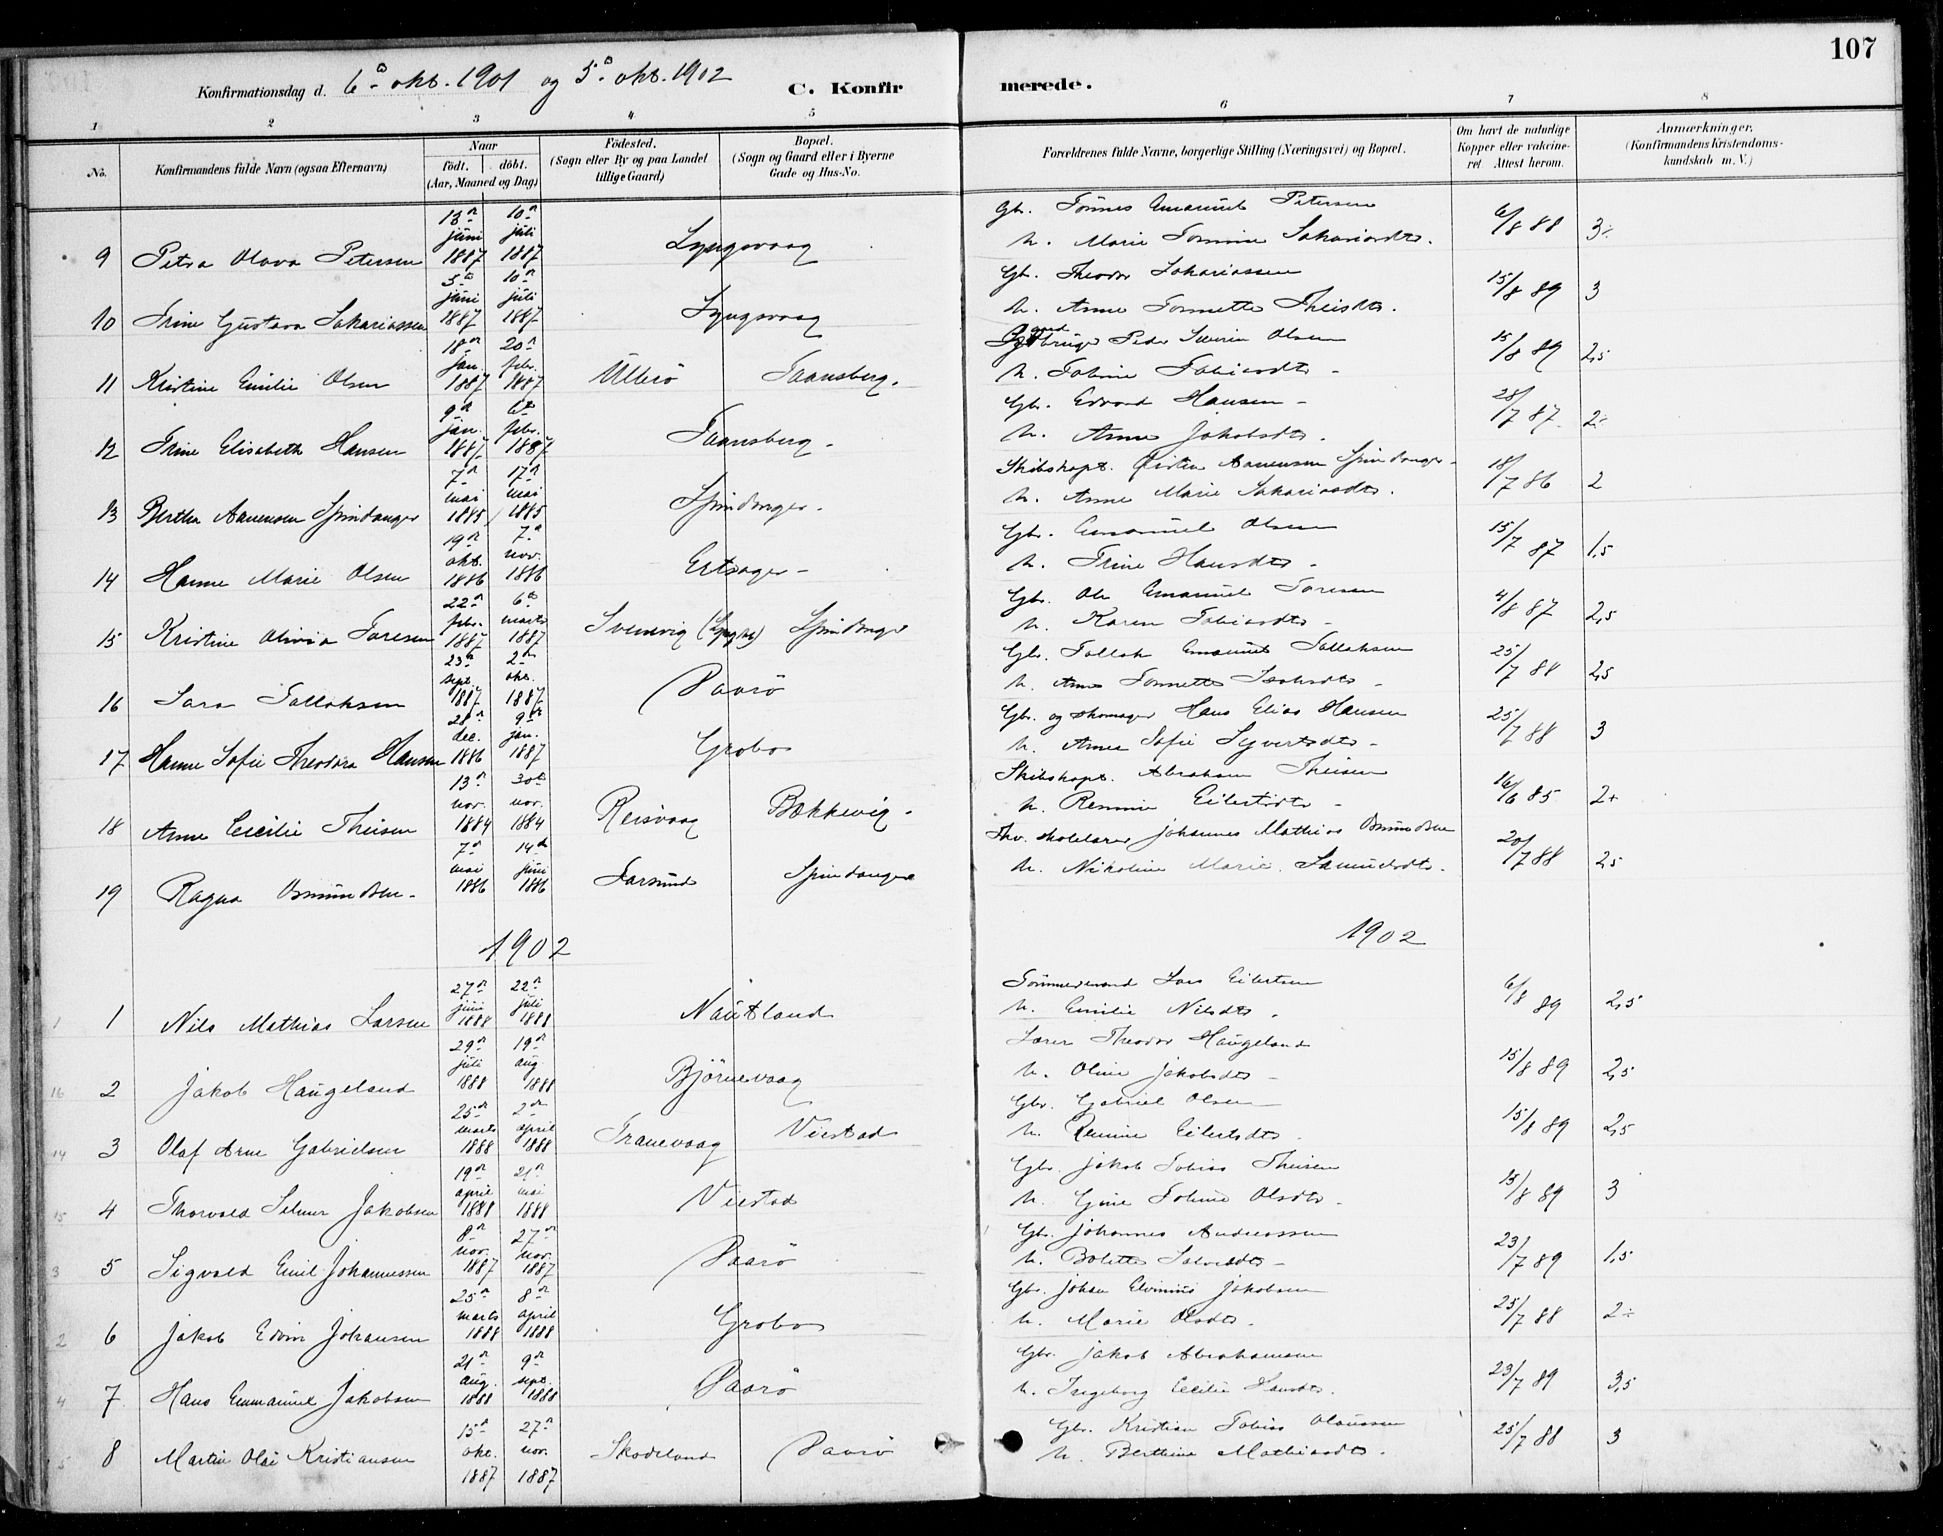 107
Konfirmationsdag d. 6te okt. 1901 og 5te okt. 1902 C. Konfirmerede.
1 2 3 4 5 6 7 8
No. Konfirmandens fulde Navn (ogsaa Efternavn) Naar født. døbt. (Aar, Maaned og Dag) Fødested. (Sogn eller By og paa Landet tillige Gaard) Bopæl. (Sogn og Gaard eller i Byerne Gade og Hus-No. Forældrenes fulde Navne, borgerlige Stilling (Næringsvei) og Bopæl. Om havt de naturlige Kopper eller vakcineret Attest herom. Anmærkninger. (Konfirmandens Kristendomskundskab m. V.)
9 Petra Olava Petersen 13de juni 1887 10de juli 1887 Lyngsvaag Gbr. Tønnes Emanuel Petersen h. Marie Tomine Sakariasdtr. 6/8 88 3÷
10 Trine Gustava Sakariassen 5te juni 1887 10de juli 1887 Lyngsvaag Gbr. Theodor Sakariassen h. Anne Tonnette Theisdtr. 15/8 89 3
11 Kristine Emilie Olsen 18de jan. 1887 20de febr. 1887 Ullerø Taansberg. Peder Severin Olsen h. Tobine Tobiasdtr 15/8 89 2,5
12 Trine Elisabeth Hansen 9de jan. 1887 6te febr. 1887 Taansberg Gbr. Edvard Hansen h. Anne Jakobsdtr. 28/7 87 2÷
13 Bertha Aanensen Spindanger 7de mai 1885 17de mai 1885 Spindanger Skibskapt. Aanensen Spindanger h. Anne Marie Sakariasdtr. 18/7 86 2
14 Hanne Marie Olsen 19de okt. 1886 7de nov. 1886 Ertsager Gbr. Emanuel Olsen h. Trine Hansdtr 15/7 87 1,5
15 Kristine Olivia Toresen 22de febr. 1887 6te marts 1887 Svennevig (Lyngdal) Spindanger Gbr. Ole Emanuel Toresen h. Karen Tobiasdtr 4/8 87 2,5
16 Sara Tallaksen 23de sept. 1887 2den okt. 1887 Paarø Gbr. Tallak Emanuel Tallaksen h. Anne Tonnette Isaksdtr 25/7 88 2,5
17 Hanne Sofie Theodora Hansen 28de dec. 1886 9de jan. 1887 Grobos Gbr. og skomager Hans Elias Hansen h. Anne Sofie Syvertsdtr 25/7 88 3
18 Anne Cecilie Theisen 13de nov. 1884 30te nov. 1884 Reisvaag Bækkevig Skibskapt. Abraham Theisen h. Remmie Eilertsdtr 16/6 85 2+
19 Ragna Osmundsen 7de mai 1886 14de juni 1886 Farsund Spindanger Fhv. skolelærer Johannes Mathias Osmundsen h. Nikoline Marie Samuelsdtr. 20/7 88 2,5
1902 1902
1 1 Nils Mathias Larsen 27de juni 1888 22de juli 1888 Nautland Tømmermand Lars Eilertsen h. Emilie Nilsdtr 6/8 89 2,5
16 2 Jakob Haugeland 29de juli 1888 19de aug. 1888 Bjørnevaag Lærer Theodor Haugeland h. Oline Jakobsdtr 15/8 89 2,5
14 3 Olaf Arne Gabrielsen 25de marts 1888 2den april 1888 Tranevaag Viestad Gbr. Gabriel Olsen h. Remine Eilertsdtr 15/8 89 2,5
15 4 Thorvald Selmer Jakobsen 19de april 1888 21de mai 1888 Viestad Gbr. Jakob Tobias Theisen h. Gine Tobine Olsdtr. 15/8 89 3
3 5 Sigvald Emil Johannessen 8de nov. 1887 27de nov. 1887 Paarø Gbr. Johannes Andreassen h. Bolette Salvesdtr 23/7 89 1,5
2 6 Jakob Edvin Johansen 25de marts 1888 8de april 1888 Grobos Gbr. Johan Elvinius Jakobsen h. Marie Olsdtr. 25/7 88 2÷
4 7 Hans Emmanuel Jakobsen 21de aug. 1888 9de sept. 1888 Paarø Gbr. Jakob Abrahamsen h. Ingeborg Cecilie Hansdtr. 23/7 89 3,5
5 8 Martin Olai Kristiansen 15de okt. 1887 27de nov. 1887 Skodeland Paarø Gbr. Kristian Tobias Olaussen h. Berthine Mathiasdtr. 25/7 88 3